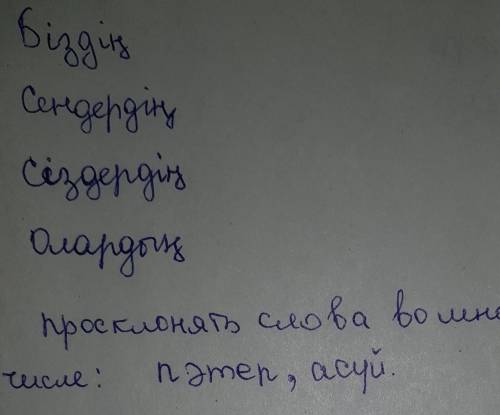 Біздің
Сендердің
Сіздердің
Олардың
просклонять слова во мно
числе: пәтер, асүй.